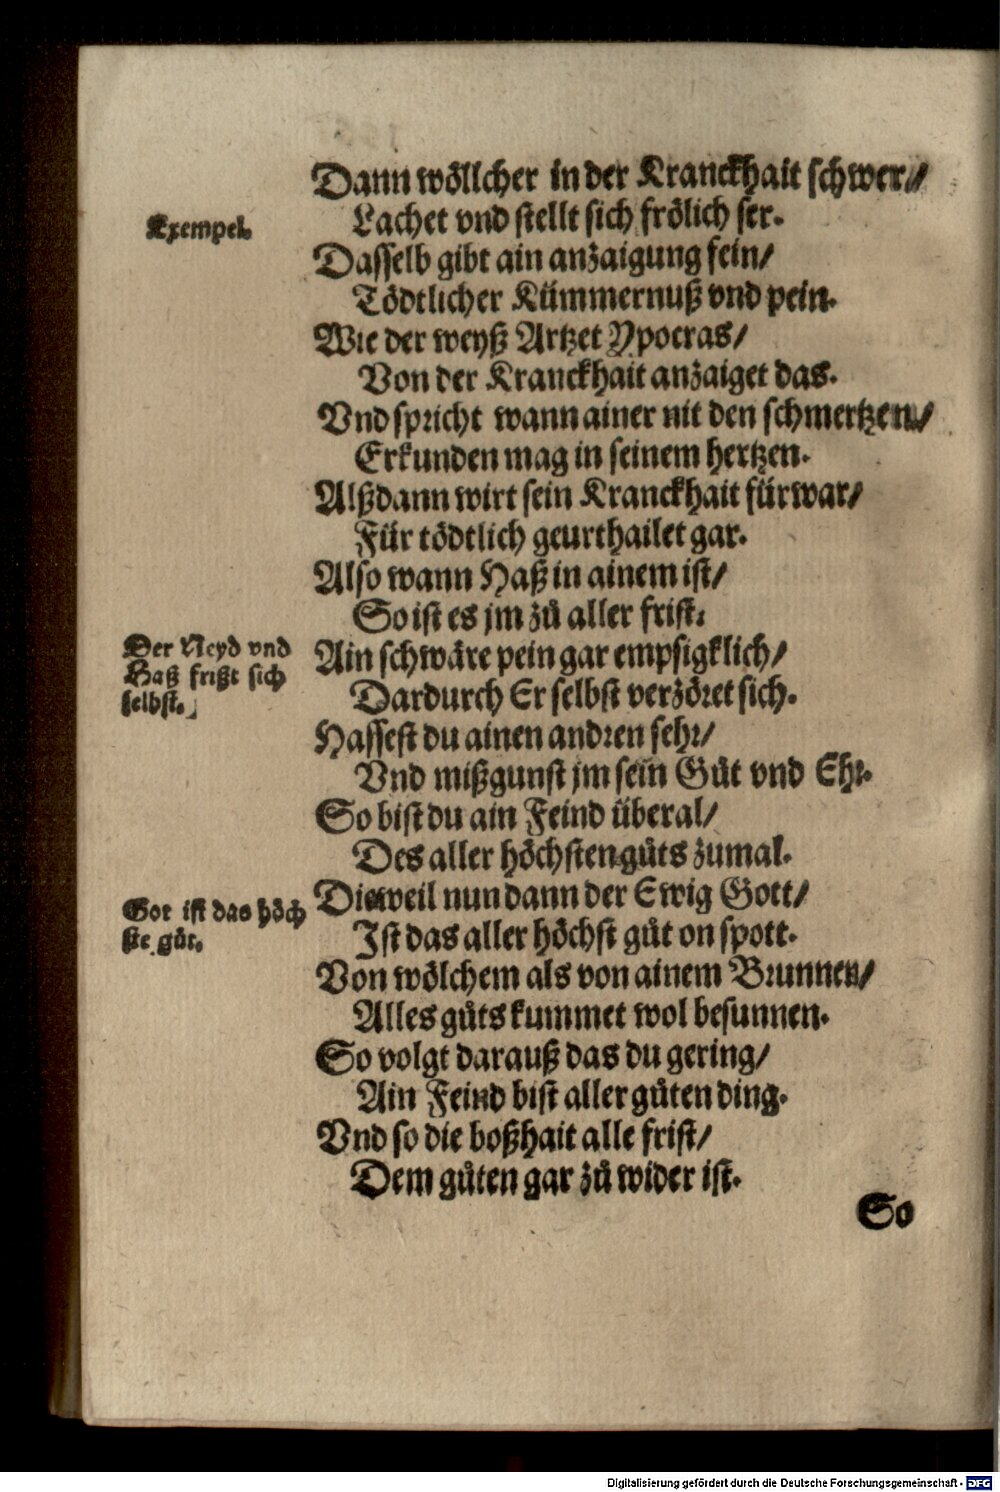 Dann wöllcher in der Kranckhait schwer/
Exempel.
Lachet vnd stellt sich frölich ser.
Dasselb gibt ain anzaigung fein/
Tödtlicher Kümmernuß vnd pein.
Wie der weyß Artzet Ypocras/
Von der Kranckhait anzaiget das.
Vnd spricht wann ainer nit den schmertzen/
Erkunden mag in seinem hertzen.
Alßdann wirt sein Kranckhait fürwar/
Für tödtlich geurthailet gar.
Also wann Haß in ainem ist/
So ist es jm zů aller frist.
Der Neyd vnd
Haß frißt sich
selbst.
Ain schwäre pein gar empsigklich/
Dardurch Er selbst verzöret sich.
Hassest du ainen andren sehr/
Vnd mißgunst jm sein Gůt vnd Ehr.
So bist du ain Feind überal/
Des aller höchsten gůts zumal.
Got ist das höch
ste gůt.
Dieweil nun dann der Ewig Gott/
Ist das aller höchst gůt on spott.
Von wölchem als von ainem Brunnen/
Alles gůts kummet wol besunnen.
So volgt darauß das du gering/
Ain Feind bist aller gůten ding.
Vnd so die boßhait alle frist/
Dem gůten gar zů wider ist.
So
Digitalisierung gefördert durch die Deutsche Forschungsgemeinschaft - DFG